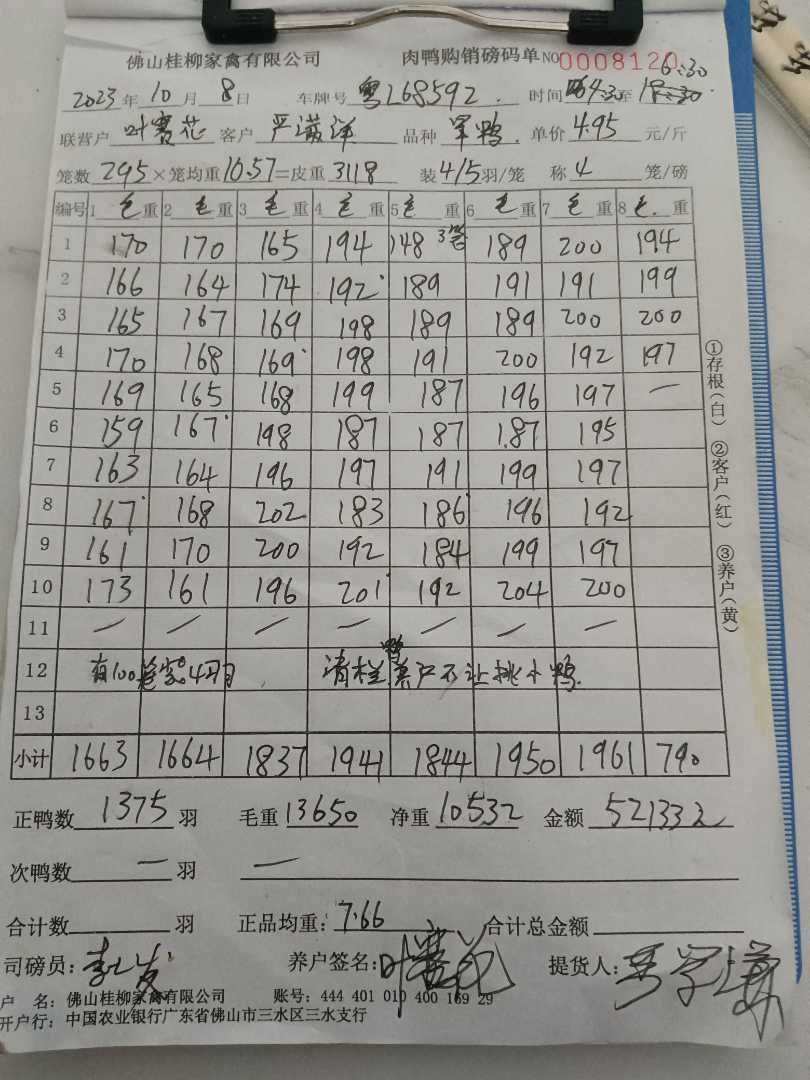 佛山桂柳家禽有限公司 肉鸭购销磅码单 NO 0008120
2023年10月8日 车牌号 粤L68592. 时间 4:30至 6:30
联营户 叶赛花 客户 严满洋 品种 军鸭. 单价 4.95 元/斤
笼数 295×笼均重10.57=皮重 3118 装4/5羽/笼 称 4 笼/磅
编号 1 毛重 2 毛重 3 毛重 4 毛重 5 毛重 6 毛重 7 毛重 8 毛重
1 170 170 165 194 148 3笼 189 200 194
2 166 164 174 192 189 191 191 199
3 165 167 169 198 189 189 200 200
4 170 168 169 198 191 200 192 197
5 169 165 168 199 187 196 197 一
6 159 167 198 187 187 187 195
7 163 164 196 197 191 199 197
8 167 168 202 183 186 196 192
9 161 170 200 192 184 199 197
10 173 161 196 201 192 204 200
11 一 一 一 一 一 一 一
12 有100笼 4只 清栏鸭 养户不让挑小鸭.
13
小计 1663 1664 1837 1941 1844 1950 1961 790
正鸭数 1375 羽 毛重 13650 净重 10532 金额 52133元
次鸭数 一 羽 一
合计数 羽 正品均重: 7.66 合计总金额
司磅员: 养户签名: 叶赛花 提货人:
户 名: 佛山桂柳家禽有限公司 账号: 444 401 010 400 169 29
开户行: 中国农业银行广东省佛山市三水区三水支行
①存根(白) ②客户(红) ③养户(黄)